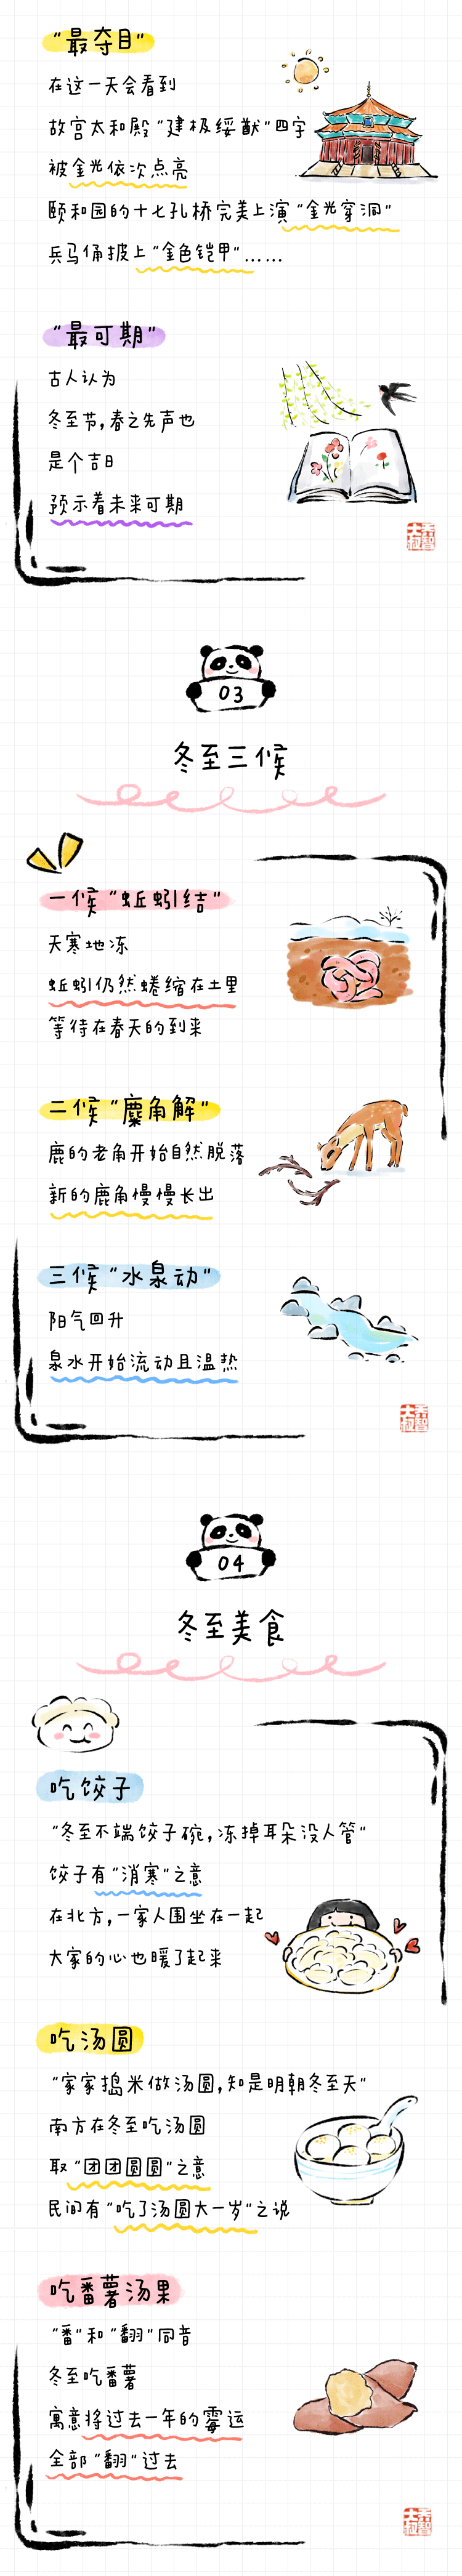 “最夺目”
在这一天会看到
故宫太和殿“建极绥猷”四字
被金光依次点亮
颐和园的十七孔桥完美上演“金光穿洞”
兵马俑披上“金色铠甲”……
“最可期”
古人认为
冬至节，春之先声也
是个吉日
预示着未来可期
03
冬至三候
一候“蚯蚓结”
天寒地冻
蚯蚓仍然蜷缩在土里
等待在春天的到来
二候“麋角解”
鹿的老角开始自然脱落
新的鹿角慢慢长出
三候“水泉动”
阳气回升
泉水开始流动且温热
04
冬至美食
吃饺子
“冬至不端饺子碗，冻掉耳朵没人管”
饺子有“消寒”之意
在北方，一家人围坐在一起
大家的心也暖了起来
吃汤圆
“家家捣米做汤圆，知是明朝冬至天”
南方在冬至吃汤圆
取“团团圆圆”之意
民间有“吃了汤圆大一岁”之说
吃番薯汤果
“番”和“翻”同音
冬至吃番薯
寓意将过去一年的霉运
全部“翻”过去